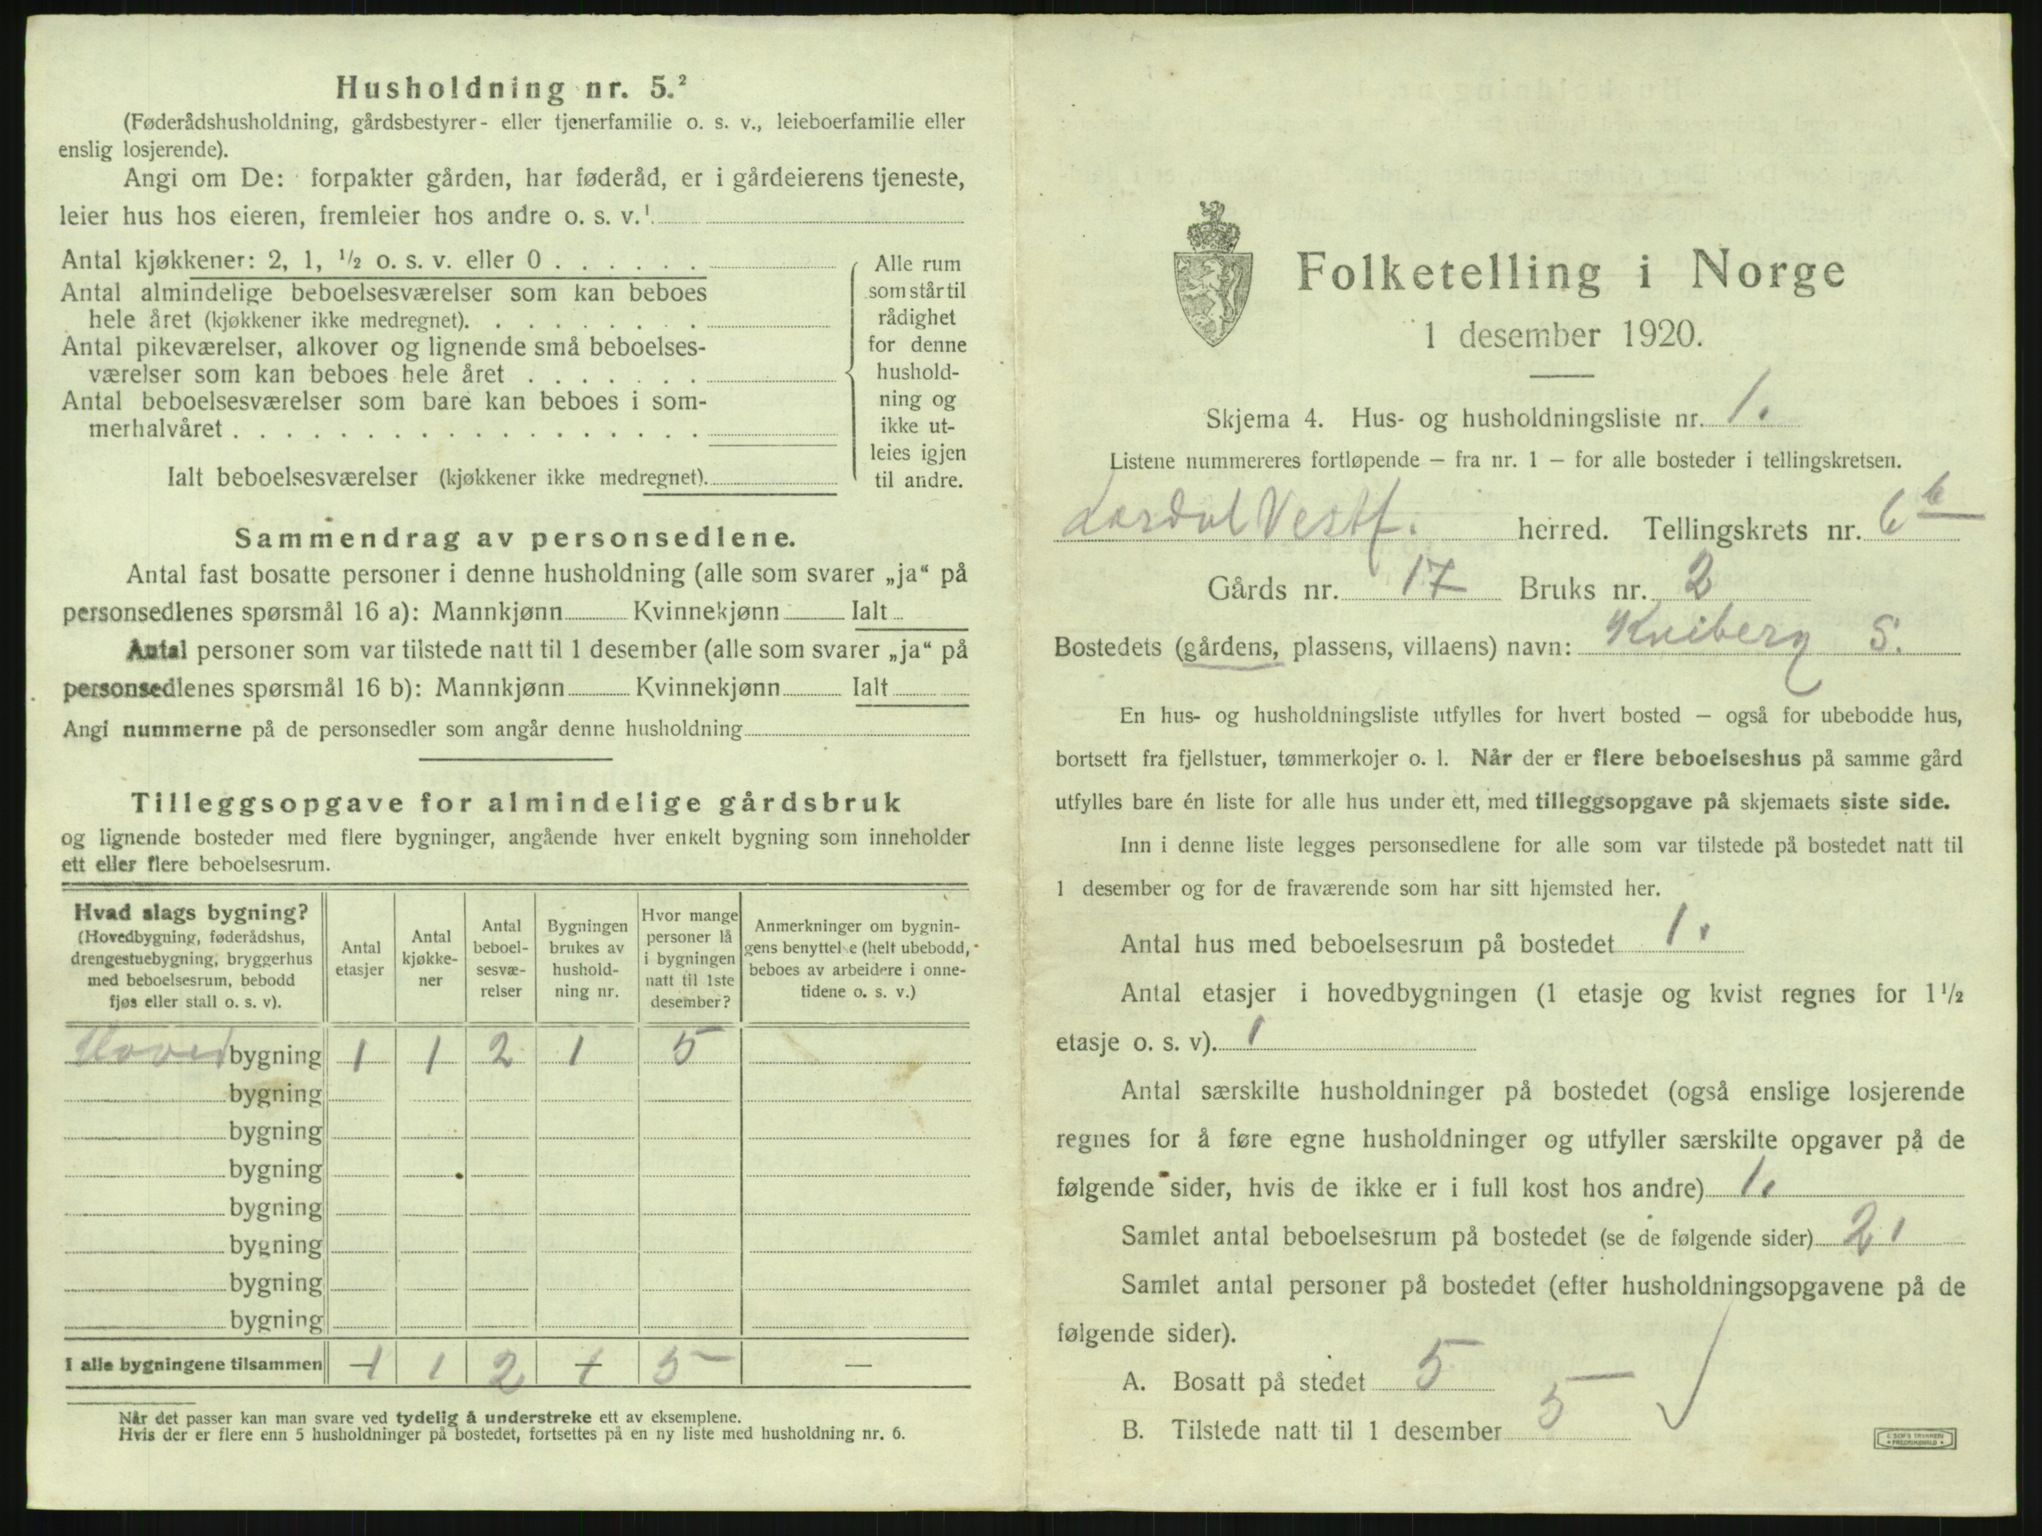 Husholdning nr. 5.²
(Føderådshusholdning, gårdsbestyrer- eller tjenerfamilie o. s. v., leieboerfamilie eller
enslig losjerende).
Angi om De: forpakter gården, har føderåd, er i gårdeierens tjeneste,
leier hus hos eieren, fremleier hos andre o. s. v.¹
Antal kjøkkener: 2, 1, ½ o. s. v. eller 0 . . . . . .
Antal almindelige beboelsesværelser som kan beboes
hele året (kjøkkener ikke medregnet). . . . . . . . .
Antal pikeværelser, alkover og lignende små beboelses-
værelser som kan beboes hele året . . . . . . .
Antal beboelsesværelser som bare kan beboes i som-
merhalvåret . . . . . . . . . . . . . . . . . .
Ialt beboelsesværelser (kjøkkener ikke medregnet).
Alle rum
som står til
rådighet
for denne
hushold-
ning og
ikke ut-
leies igjen
til andre.
Sammendrag av personsedlene.
Antal fast bosatte personer i denne husholdning (alle som svarer „ja“ på
personsedlenes spørsmål 16 a): Mannkjønn Kvinnekjønn Ialt
Antal personer som var tilstede natt til 1 desember (alle som svarer „ja“ på
personsedlenes spørsmål 16 b): Mannkjønn Kvinnekjønn Ialt
Angi nummerne på de personsedler som angår denne husholdning
Tilleggsopgave for almindelige gårdsbruk
og lignende bosteder med flere bygninger, angående hver enkelt bygning som inneholder
ett eller flere beboelsesrum.
Hvad slags bygning?
(Hovedbygning, føderådshus,
drengestuebygning, bryggerhus
med beboelsesrum, bebodd
fjøs eller stall o. s. v).
Antal
etasjer
Antal
kjøkke-
ner
Antal
beboel-
sesvæ-
relser
Bygningen
brukes av
hushold-
ning nr.
Hvor mange
personer lå
i bygningen
natt til 1ste
desember?
Anmerkninger om bygnin-
gens benyttelse (helt ubebodd,
beboes av arbeidere i onne-
tidene o. s. v.)
Hovedbygning 1 1 2 1 5
bygning
bygning
bygning
bygning
bygning
bygning
bygning
I alle bygningene tilsammen 1 1 2 + 5 —
Når det passer kan man svare ved tydelig å understreke ett av eksemplene.
Hvis der er flere enn 5 husholdninger på bostedet, fortsettes på en ny liste med husholdning nr. 6.
Folketelling i Norge
1 desember 1920.
Skjema 4. Hus- og husholdningsliste nr. 1.
Listene nummereres fortløpende – fra nr. 1 – for alle bosteder i tellingskretsen.
Lardal Vestf. herred. Tellingskrets nr. 6b
Gårds nr. 17 Bruks nr. 2
Bostedets (gårdens, plassens, villaens) navn: Kviberg S.
En hus- og husholdningsliste utfylles for hvert bosted – også for ubebodde hus,
bortsett fra fjellstuer, tømmerkojer o. l. Når der er flere beboelseshus på samme gård
utfylles bare én liste for alle hus under ett, med tilleggsopgave på skjemaets siste side.
Inn i denne liste legges personsedlene for alle som var tilstede på bostedet natt til
1 desember og for de fraværende som har sitt hjemsted her.
Antal hus med beboelsesrum på bostedet 1.
Antal etasjer i hovedbygningen (1 etasje og kvist regnes for 1½
etasje o. s. v). 1
Antal særskilte husholdninger på bostedet (også enslige losjerende
regnes for å føre egne husholdninger og utfyller særskilte opgaver på de
følgende sider, hvis de ikke er i full kost hos andre) 1.
Samlet antal beboelsesrum på bostedet (se de følgende sider) 2.
Samlet antal personer på bostedet (efter husholdningsopgavene på de
følgende sider).
A. Bosatt på stedet 5
B. Tilstede natt til 1 desember 5